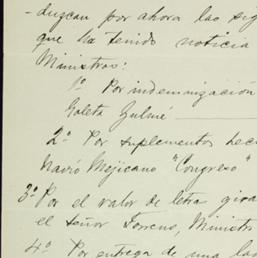 -duzcan por ahora las sig
que ha tenido noticia
Ministros:
1º Por indemnización
Goleta Zulmé
2º Por suplementos hec
Navío Mejicano "Congreso"
3º Por el valor de letra gira
el Señor Torrens, Ministr
4º Por entrega de una la